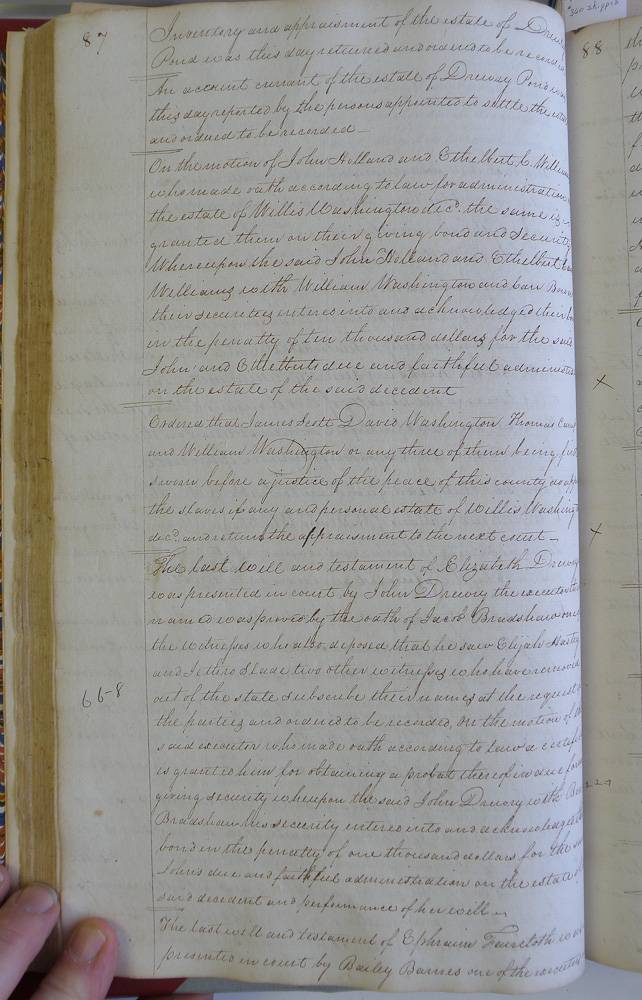 87
Inventory and appraisment of the estate of Drewry
Pond was this day returned and ordered to be recorded
An account currant of the estate of Drewry Pond was
this day reported by the persons appointed to settle the
and ordered to be recorded
On the motion of John Holland and Ethelbert C. Williams
who made oath according to law for administration
the estate of Willis Washington decd. the same is
granted them on their giving bond and security
Whereupon the said John Holland and Ethelbert
Williams with William Washington and Carr
their securities entered into and acknowledged their
in the penalty of ten thousand dollars for the said
John and Ethelberts due and faithful administration
on the estate of the said decedent
Ordered that James Scott David Washington Thomas
and William Washington or any three of them being first
sworn before a justice of the peace of this county do
the slaves if any and personal estate of Willis Washington
decd. and return the appraisment to the next court
The last will and testament of Elizabeth Drewry
was presented in court by John Drewry the executor
named was proved by the oath of Jacob Bradshaw one
the witnesses who also deposed that he saw Elijah
and Jethro Slade two other witnesses who have removed
out of the state subscribe their names at the request
the parties and ordered to be recorded, on the motion of
said executor who made oath according to law a
is granted him for obtaining a probat thereof in due form
66-8
giving security whereupon the said John Drewry with
Bradshaw his security entered into and acknowledged
bond in the penalty of one thousand dollars for the
John's due and faithful administration on the estate of
said decedent and performance of her will
The last will and testament of Ephraim Faircloth was
presented in court by Bailey Barnes one of the executors
88